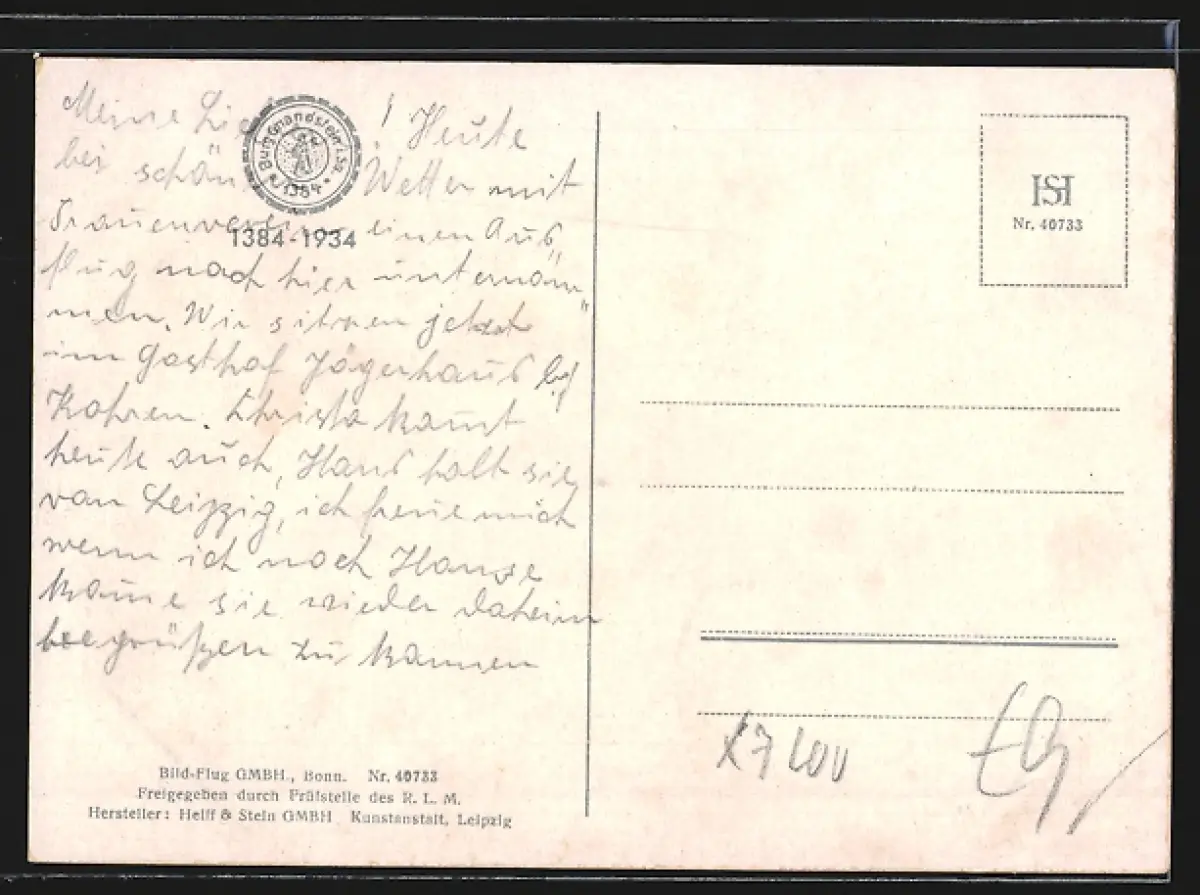 Meine ! Heute
bei schön Wetter mit
Frauenverein einen Aus
flug nach hier unternom
men. Wir sitzen jetzt
im Gasthof Jägerhaus bei
Kohren. Christa kamt
heute auch, Hans holt sie
von Leipzig, ich freue mich
wenn ich nach Hause
kame sie wieder daheim
begrüßen zu kannen
Burg Gnandstein i. Sa.
1384
1384-1934
Bild-Flug GMBH., Bonn. Nr. 40733
Freigegeben durch Prüfstelle des R. L. M.
Hersteller: Helff & Stein GMBH Kunstanstalt, Leipzig
HSH
Nr. 40733